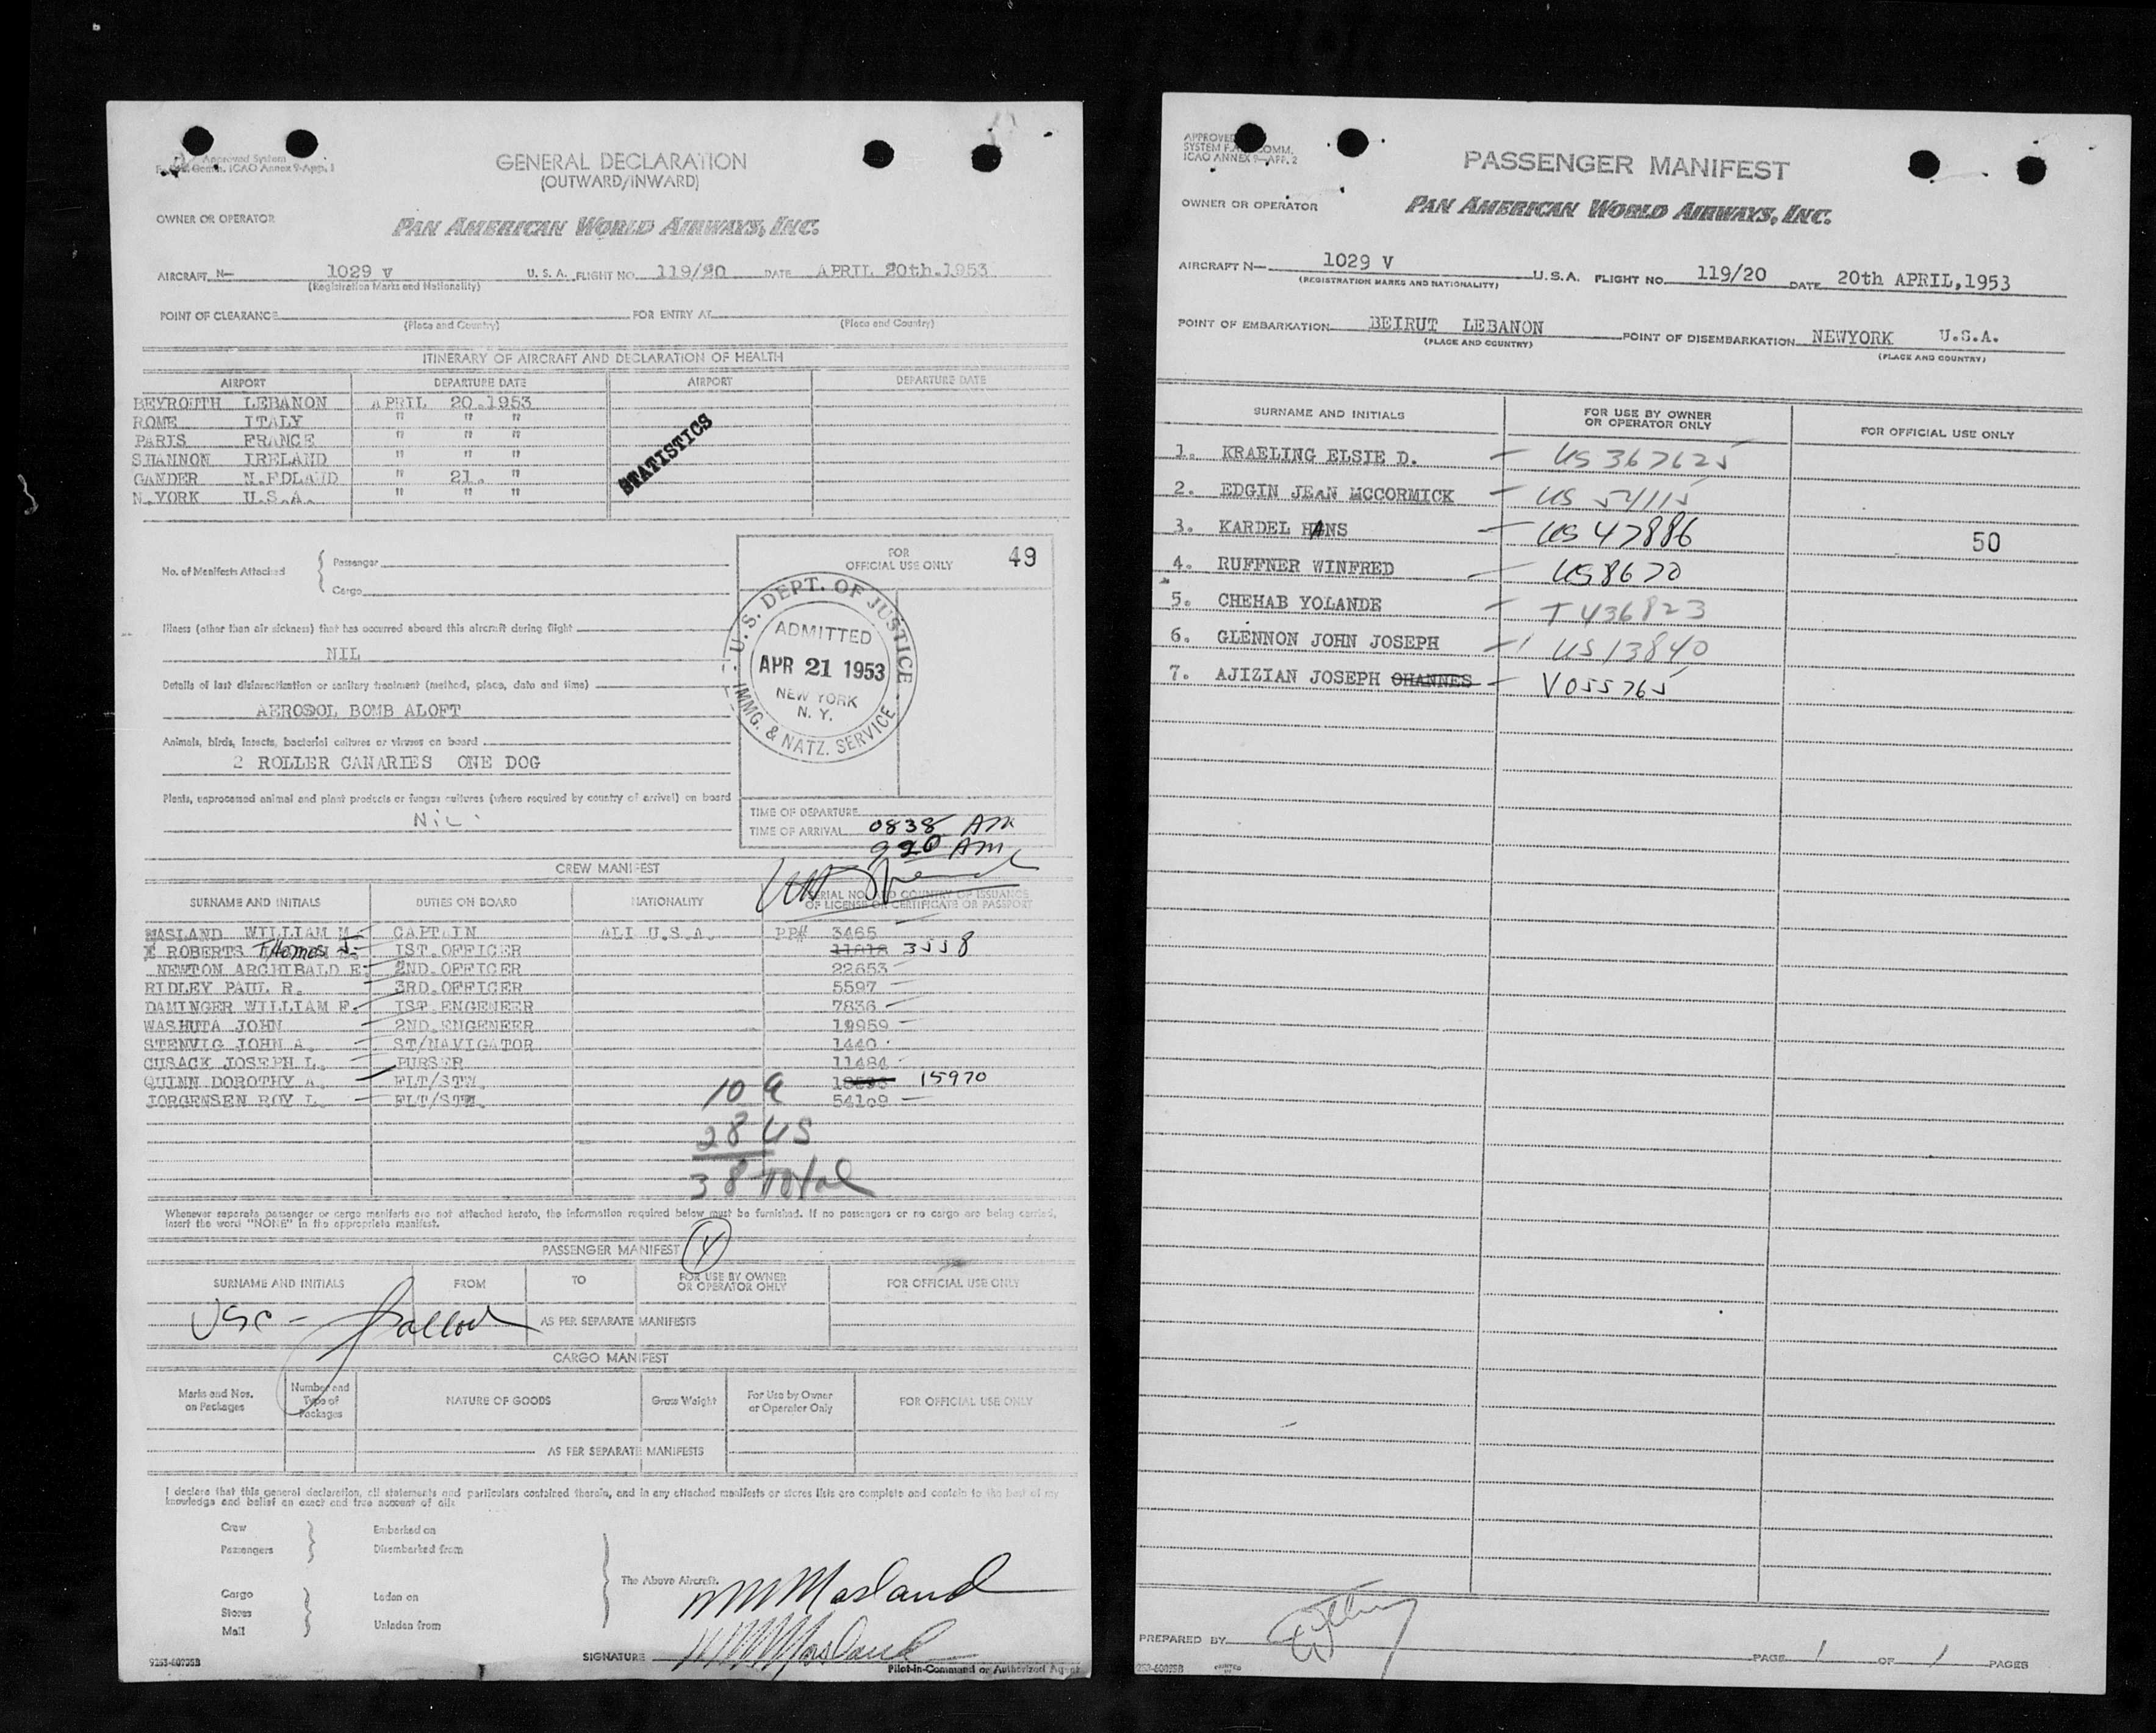 Approved System
Comm. ICAO Annex 9-App. 1
GENERAL DECLARATION
(OUTWARD/INWARD)
OWNER OR OPERATOR
PAN AMERICAN WORLD AIRWAYS, INC.
AIRCRAFT N— 1029 V U. S. A. FLIGHT NO. 119/20 DATE APRIL 20th.1953
(Registration Marks and Nationality)
POINT OF CLEARANCE FOR ENTRY AT
(Place and Country) (Place and Country)
ITINERARY OF AIRCRAFT AND DECLARATION OF HEALTH
AIRPORT DEPARTURE DATE AIRPORT DEPARTURE DATE
BEYROUTH LEBANON APRIL 20.1953
ROME ITALY " " "
PARIS FRANCE " " "
SHANNON IRELAND " " "
GANDER N.FDLAND " 21. "
N.YORK U.S.A. " " "
STATISTICS
No. of Manifests Attached { Passenger
Cargo
FOR
OFFICIAL USE ONLY 49
Illness (other than air sickness) that has occurred aboard this aircraft during flight
NIL
Details of last disinsectization or sanitary treatment (method, place, date and time)
AEROSOL BOMB ALOFT
Animals, birds, insects, bacterial cultures or viruses on board
2 ROLLER CANARIES ONE DOG
Plants, unprocessed animal and plant products or fungus cultures (where required by country of arrival) on board
NIL.
U. S. DEPT. OF JUSTICE
ADMITTED
APR 21 1953
NEW YORK
N. Y.
IMMG. & NATZ. SERVICE
TIME OF DEPARTURE
TIME OF ARRIVAL 0838 AM
920 AM
CREW MANIFEST
SURNAME AND INITIALS DUTIES ON BOARD NATIONALITY SERIAL NO. AND COUNTRY OF ISSUANCE
OF LICENSE OR CERTIFICATE OR PASSPORT
MASLAND WILLIAM M. CAPTAIN ALL U.S.A. PP# 3465
ROBERTS Thomas J. IST.OFFICER 11818 3558
NEWTON ARCHIBALD E. 2ND.OFFICER 22653
RIDLEY PAUL R. 3RD.OFFICER 5597
DAMINGER WILLIAM F. IST.ENGENEER 7836
WASHUTA JOHN 2ND.ENGENEER 19959
STENVIG JOHN A. ST/NAVIGATOR 1440
CUSACK JOSEPH L. PURSER 11484
QUINN DOROTHY A. FLT/STW. 15970
JORGENSEN ROY L. FLT/STW. 54109
10 a
28 US
38 Total
Whenever separate passenger or cargo manifests are not attached hereto, the information required below must be furnished. If no passengers or no cargo are being carried,
insert the word "NONE" in the appropriate manifest.
PASSENGER MANIFEST
SURNAME AND INITIALS FROM TO FOR USE BY OWNER
OR OPERATOR ONLY FOR OFFICIAL USE ONLY
AS PER SEPARATE MANIFESTS
CARGO MANIFEST
Marks and Nos.
on Packages Number and
Type of
Packages NATURE OF GOODS Gross Weight For Use by Owner
or Operator Only FOR OFFICIAL USE ONLY
AS PER SEPARATE MANIFESTS
I declare that this general declaration, all statements and particulars contained therein, and in any attached manifests or stores lists are complete and contain to the best of my
knowledge and belief an exact and true account of all:
Crew Embarked on
Passengers Disembarked from
Cargo Laden on
Stores
Mail Unladen from
The Above Aircraft.
WM Masland
SIGNATURE WM Masland
9253-60735B Pilot-in-Command or Authorized Agent
APPROVED
SYSTEM COMM.
ICAO ANNEX 9—APP. 2
PASSENGER MANIFEST
OWNER OR OPERATOR
PAN AMERICAN WORLD AIRWAYS, INC.
AIRCRAFT N— 1029 V U.S.A. FLIGHT NO. 119/20 DATE 20th APRIL,1953
(REGISTRATION MARKS AND NATIONALITY)
POINT OF EMBARKATION BEIRUT LEBANON POINT OF DISEMBARKATION NEWYORK U.S.A.
(PLACE AND COUNTRY) (PLACE AND COUNTRY)
SURNAME AND INITIALS FOR USE BY OWNER
OR OPERATOR ONLY FOR OFFICIAL USE ONLY
1. KRAELING ELSIE D. — US 367625
2. EDGIN JEAN MCCORMICK — US 54115
3. KARDEL HANS — US 47886 50
4. RUFFNER WINFRED — US 8670
5. CHEHAB YOLANDE — T 436823
6. GLENNON JOHN JOSEPH — US 13840
7. AJIZIAN JOSEPH OHANNES — V055765
PREPARED BY
PAGE 1 OF 1 PAGES